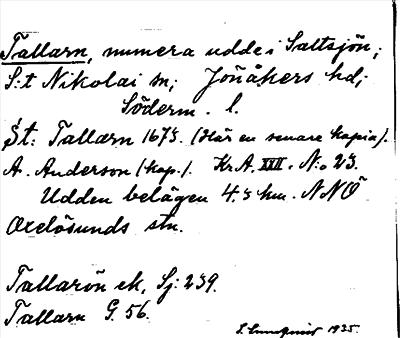 Tallarn, numera udde i Saltsjön;
S:t Nikolai sn; Jönåkers hd;
Söderm. l.
St: Tallarn 1675. (Här en senare kopia).
A. Anderson (kop.). Kr.A. XXII. N:o 23.
Udden belägen 4.5 km. NNÖ
Oxelösunds stn.
Tallarön ek, Sj: 239.
Tallarn G. 56.
S. Lundqvist 1935.